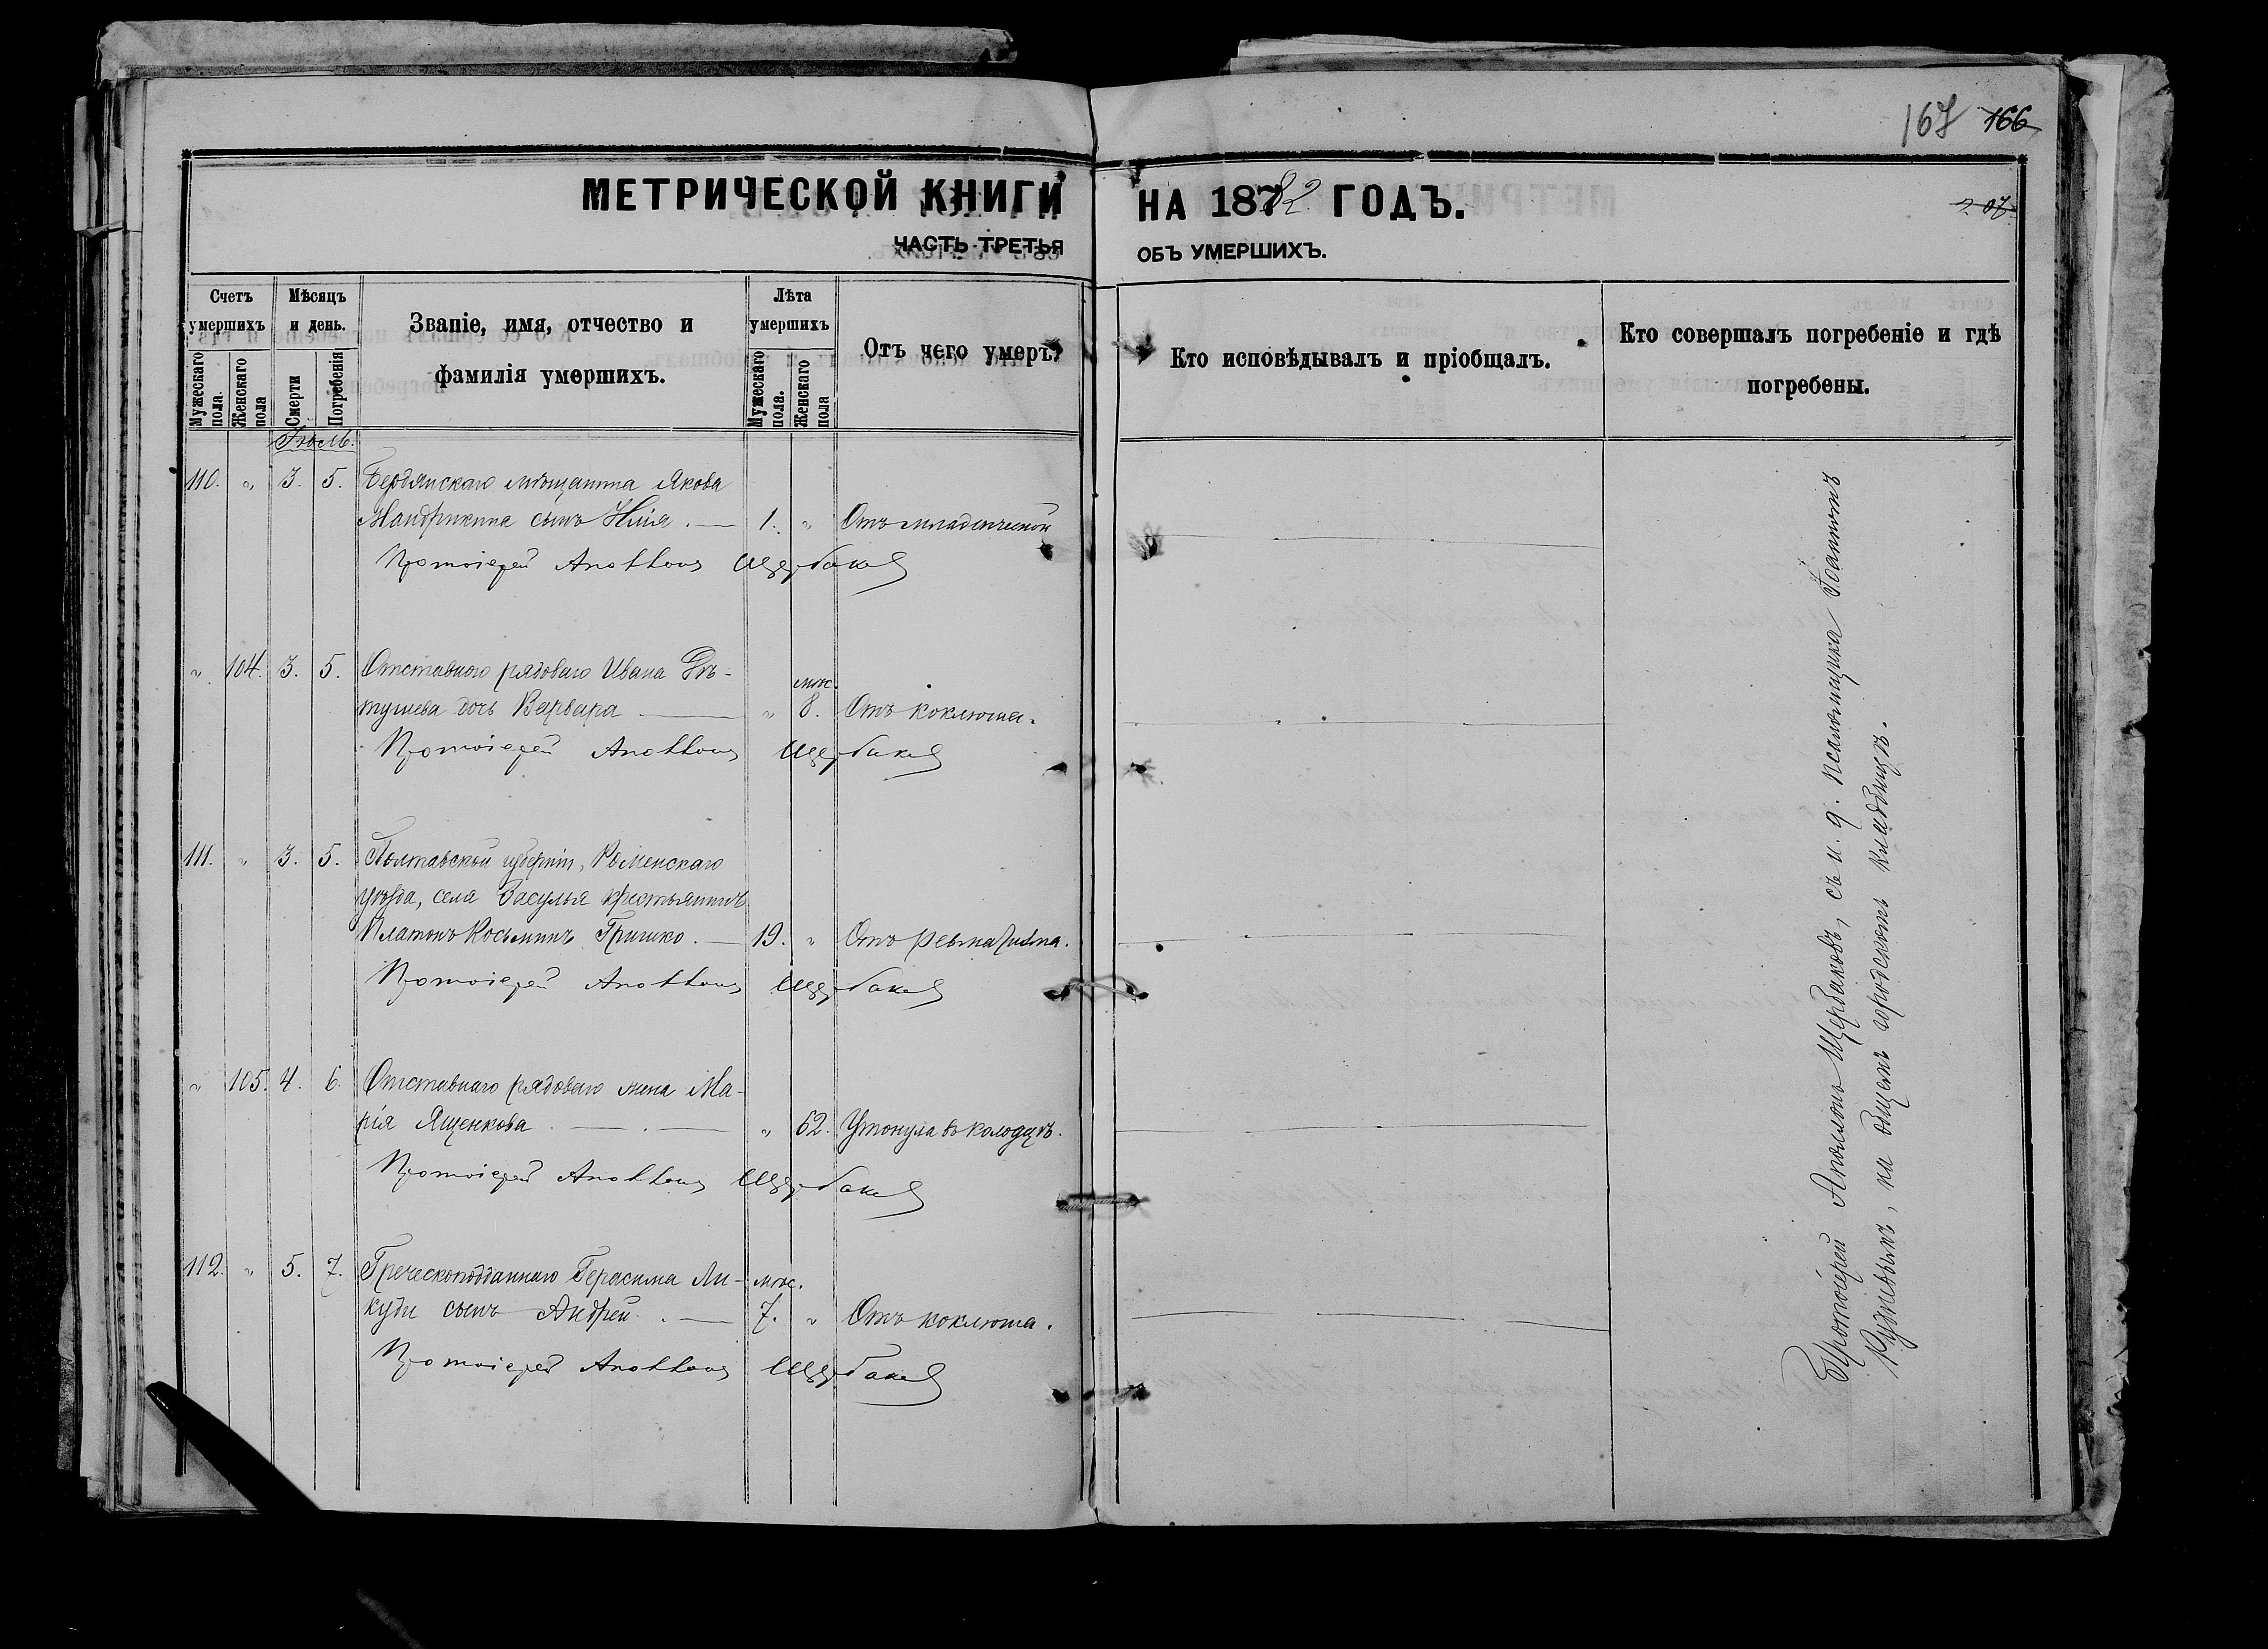 167 166
МЕТРИЧЕСКОЙ КНИГИ НА 1882 ГОДЪ.
ЧАСТЬ ТРЕТЬЯ ОБЪ УМЕРШИХЪ.
Счетъ умершихъ
Мужескаго пола.
Женскаго пола
Мѣсяцъ и день.
Смерти
Погребенія
Званіе, имя, отчество и
фамилія умершихъ.
Лѣта умершихъ
Мужескаго пола.
Женскаго пола
Отъ чего умеръ?
Кто исповѣдывалъ и пріобщалъ.
Кто совершалъ погребеніе и гдѣ
погребены.
Іюль.
110. „ 3. 5. Бердянскаго мѣщанина Якова
Мандрыкина сынъ Илія. 1. „ Отъ младенческой
Протоіерей Аполлонъ Щербаковъ
„ 104. 3. 5. Отставного рядоваго Ивана
дочь Варвара „ мѣс. 8. Отъ коклюша.
Протоіерей Аполлонъ Щербаковъ
111. „ 3. 5. Полтавской губерніи, Роменскаго
уѣзда, села Засулья крестьянинъ
Платонъ Косьминъ Гришко. 19. „ Отъ ревматизма.
Протоіерей Аполлонъ Щербаковъ
„ 105. 4. 6. Отставнаго рядоваго жена Ма-
рія Ященкова. „ 62. Утонула въ колодцѣ.
Протоіерей Аполлонъ Щербаковъ
112. „ 5. 7. Греческоподданнаго Герасима Ли-
куди сынъ Андрей. мѣс. 7. „ Отъ коклюша.
Протоіерей Аполлонъ Щербаковъ
Протоіерей Аполлонъ Щербаковъ, съ и. д. псаломщика Іоанномъ
Рудневымъ, на общемъ городскомъ кладбищѣ.